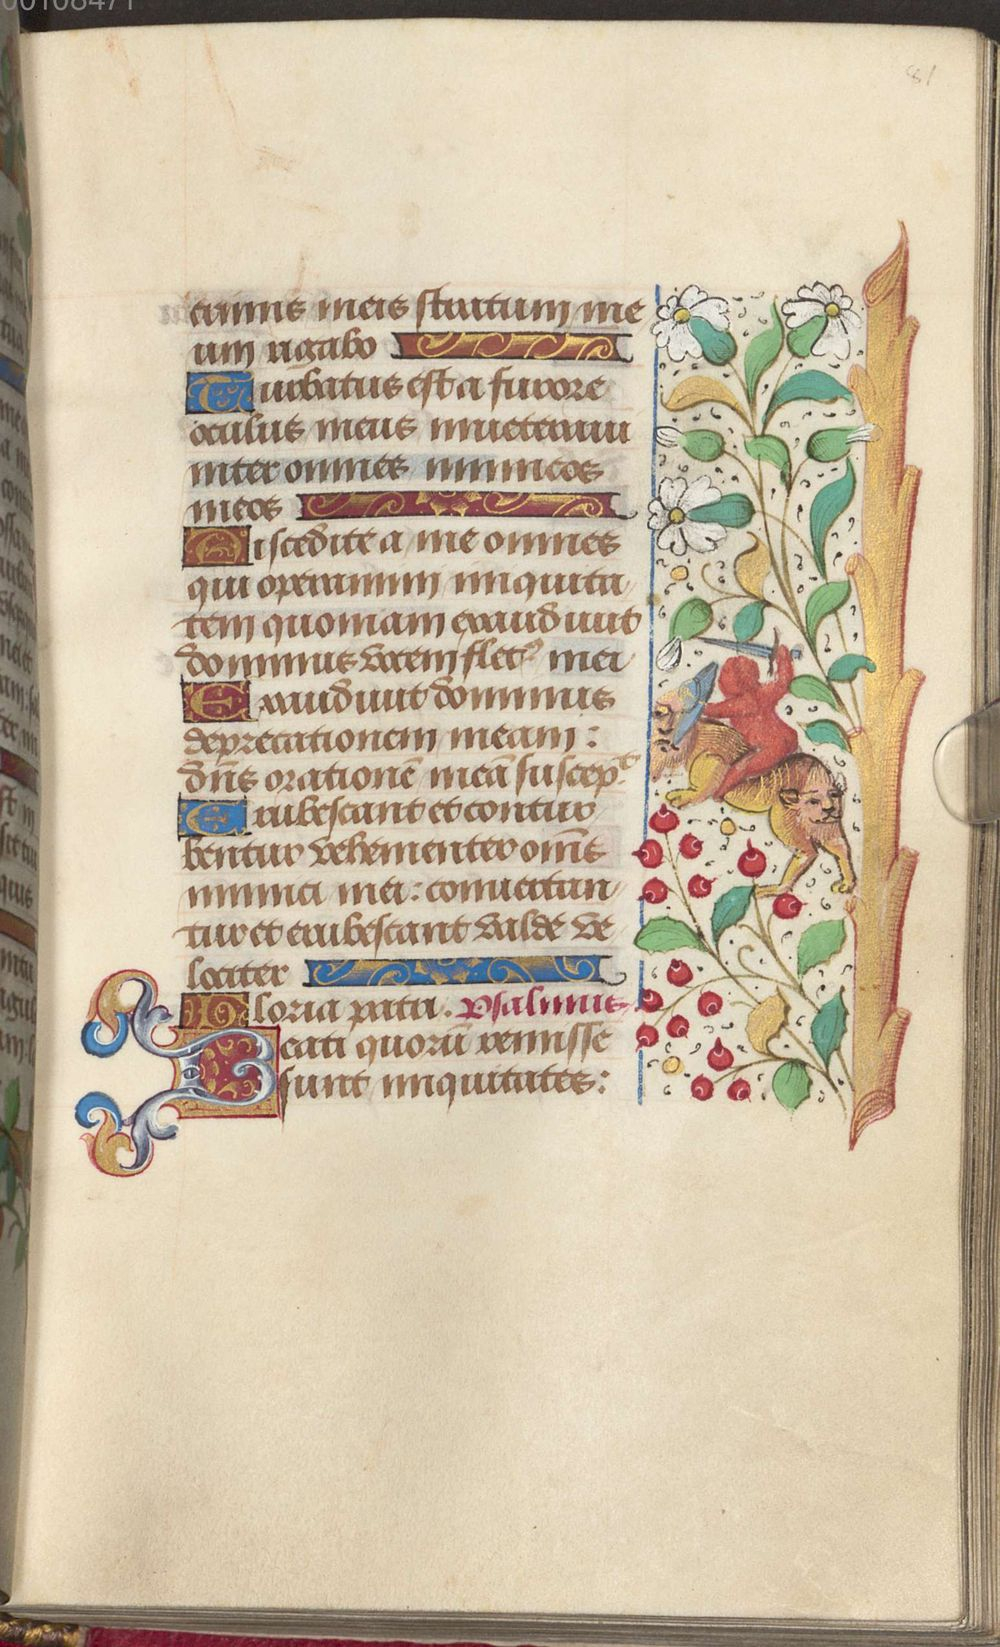 00108471
81
crimis meis stratum me
um rigabo
Turbatus est a furore
oculus meus inveteravi
inter omnes inimicos
meos
Discedite a me omnes
qui operamini iniquita
tem quoniam exaudivit
dominus vocem flet⁹ mei
Exaudivit dominus
deprecationem meam :
dn̄s orationē meā suscep̄t
Erubescant et contur
bentur vehementer om̄s
inimici mei : convertan
tur et erubescant valde ve
lociter
Gloria patri. Psalmus
Beati quorū remisse
sunt iniquitates :